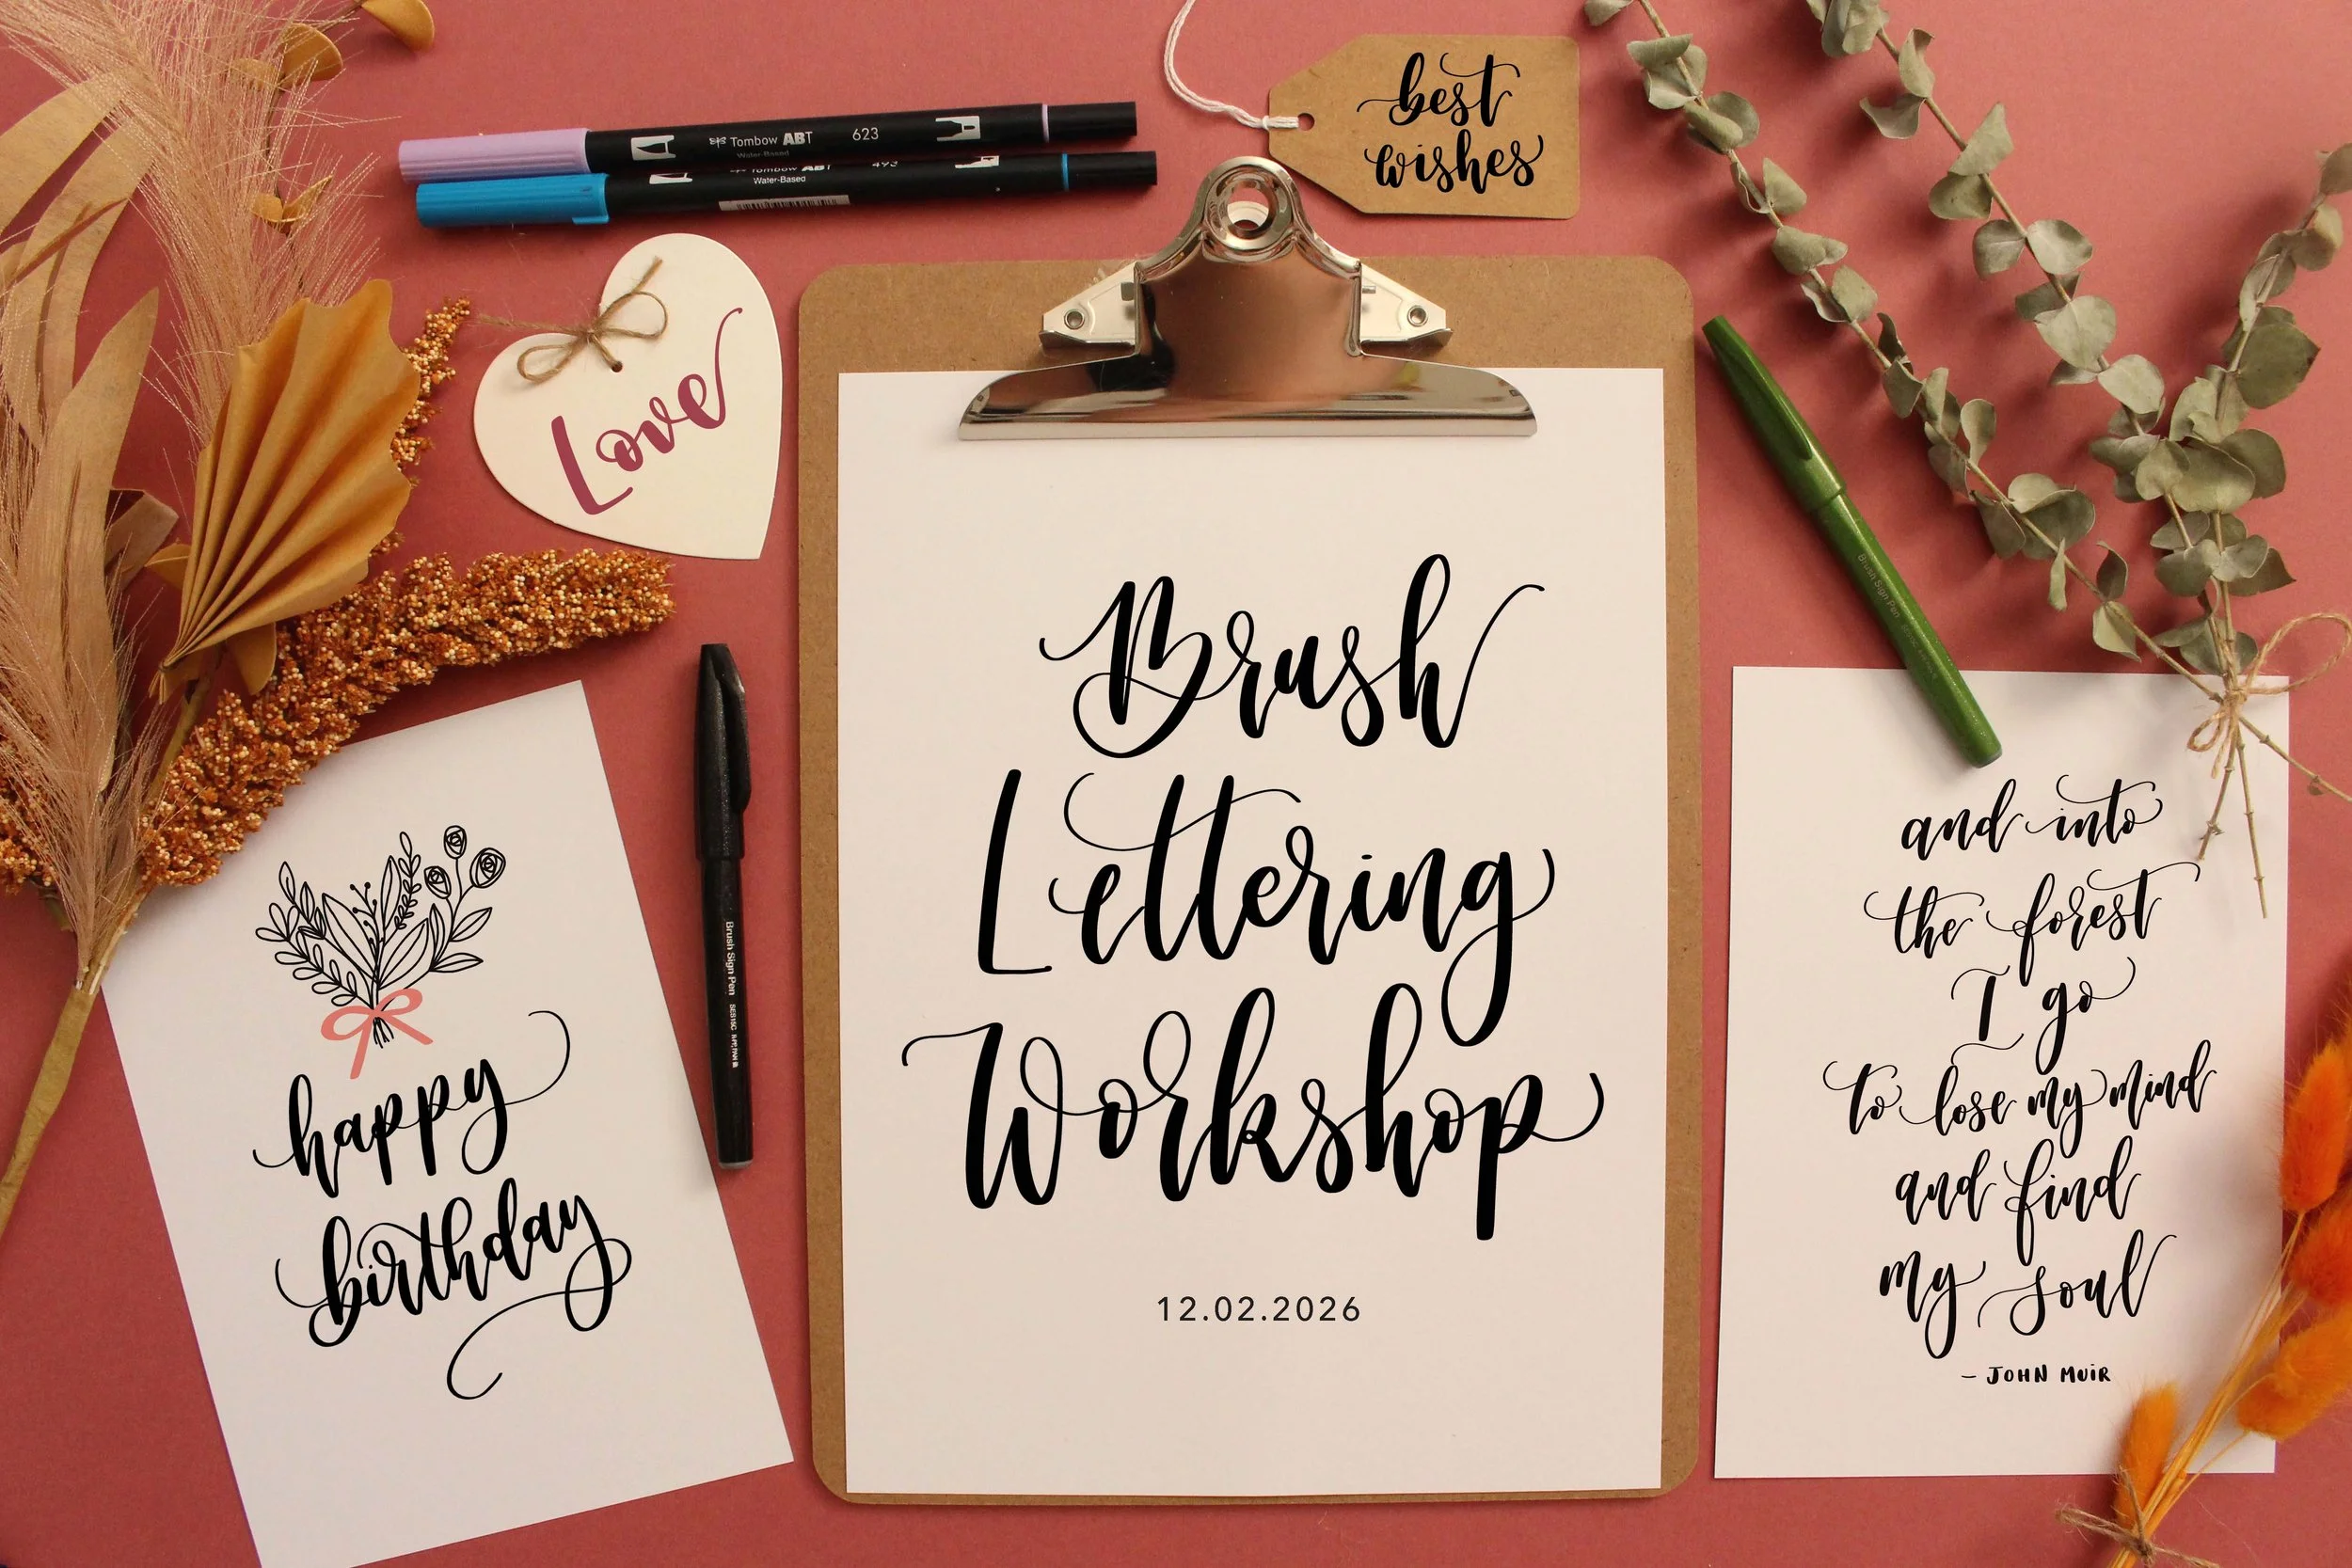 Tombow ABT 623
Water-Based
Tombow ABT 493
Water-Based
best
wishes
Love
Brush
Lettering
Workshop
12.02.2026
Brush Sign Pen
Brush Sign Pen
happy
birthday
and into
the forest
I go
to lose my mind
and find
my soul
– JOHN MUiR